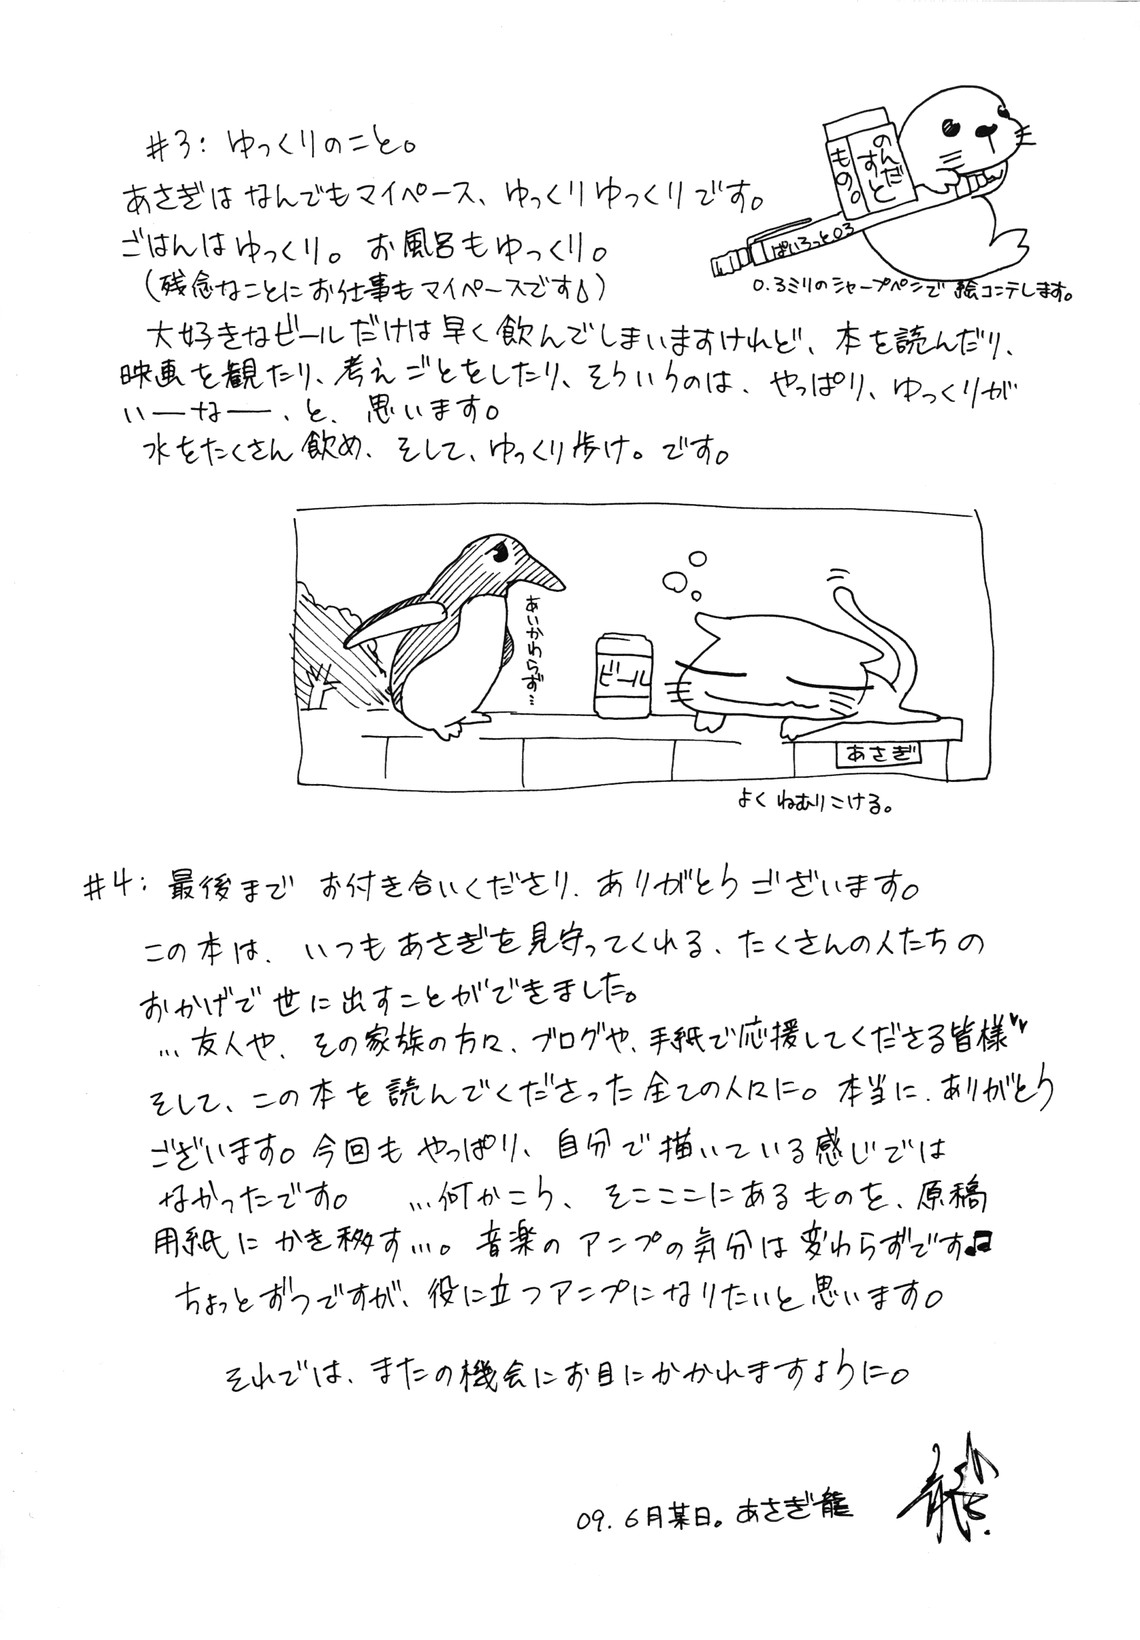 #3: ゆっくりのこと。
あさぎは なんでもマイペース、ゆっくりゆっくりです。
ごはんはゆっくり。お風呂もゆっくり。
(残念なことにお仕事もマイペースです)
大好きなビールだけは早く飲んでしまいますけれど、本を読んだり、
映画を観たり、考えごとをしたり、そういうのは、やっぱり、ゆっくりが
いーなー、と、思います。
水をたくさん飲め、そして、ゆっくり歩け。です。
のんだ
すと
もの。
ぱいろっと03
0.3ミリのシャープペンで 絵コンテします。
あいかわらず…
ビール
あさぎ
よく ねむりこける。
#4: 最後まで お付き合いくださり、ありがとうございます。
この本は、いつもあさぎを見守ってくれる、たくさんの人たちの
おかげで世に出すことができました。
…友人や、その家族の方々、ブログや、手紙で応援してくださる皆様
そして、この本を読んでくださった全ての人々に。本当に、ありがとう
ございます。今回も やっぱり、自分で描いている感じでは
なかったです。 …何かこう、そこここにあるものを、原稿
用紙に かき移す…。音楽の アンプの気分は変わらずです♫
ちょっとずつですが、役に立つアンプになりたいと思います。
それでは、またの機会にお目にかかれますように。
09.6月某日。あさぎ龍